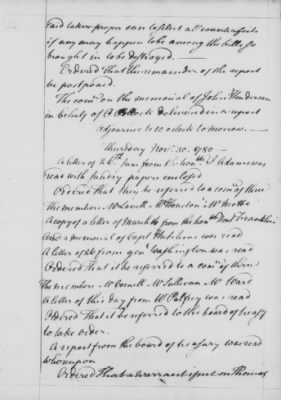 said taken proper care to detect all counterfeits
if any may happen to be among the bills so
brought in to be destroyed. —
Ordered that the remainder of the report
be postponed.
The comee on the memorial of John Henderson
in behalf of delivered in a report
Adjourned to 10 o'clock to morrow. —
Thursday Nov. 30. 1780 —
A letter of 26th June from honble J Adams was
read with sundry papers enclosed
Ordered that they be referred to a comee of three
the members Mr Lovell Mr Houston Mr Motte
A copy of a letter of March 4th from the honble Doct Franklin
and a memorial of Capt Hutchins was read
A letter of 26 from genl Washington was read
Ordered that it be referred to a comee of three
The members Mr Cornell Mr Sullivan Mr Ward
A letter of this day from W Palfrey was read
Ordered That it be referred to the board of treasy
to take order.
A report from the board of treasury was read
whereupon
Ordered That a warrant issue on Thomas